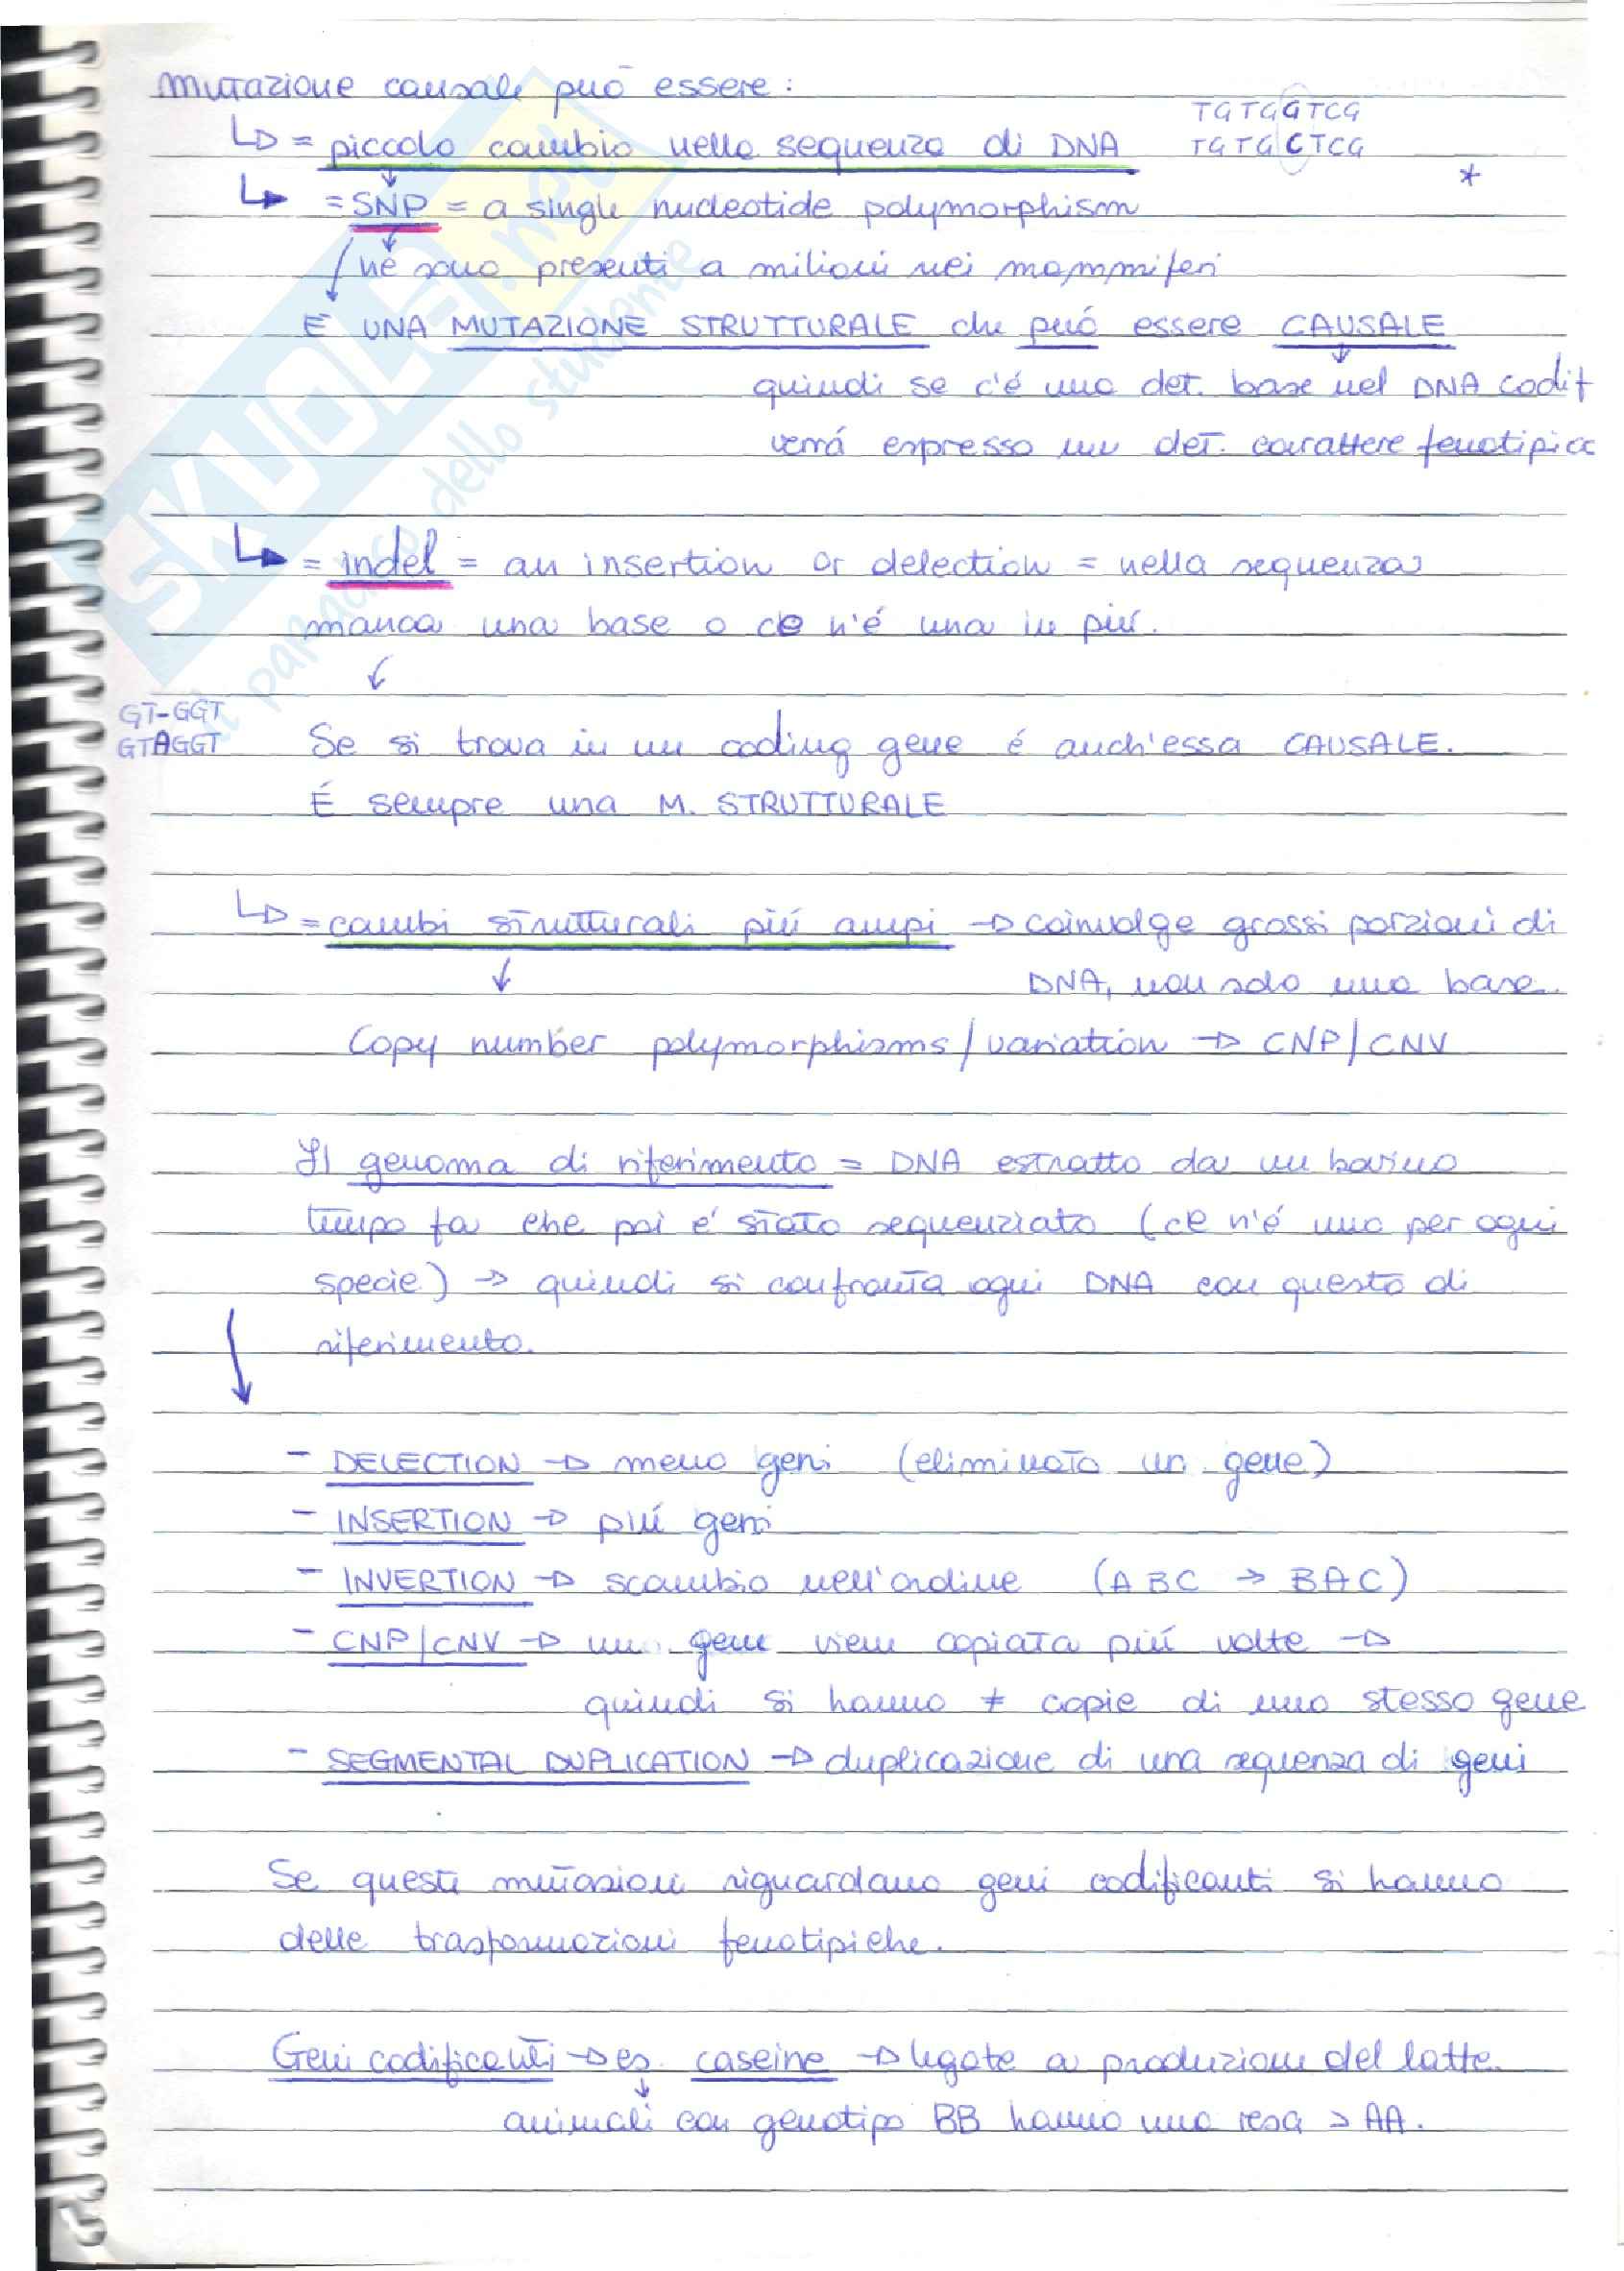 mutazione causale può essere:
TGTGGTCG
↳ = piccolo cambio nella sequenza di DNA TGTGCTCG
*
↳ = SNP = a single nucleotide polymorphism
↓ ne sono presenti a milioni nei mammiferi
É UNA MUTAZIONE STRUTTURALE che puó essere CAUSALE
quindi se c'é una det. base nel DNA codif
verrá espresso un det. carattere fenotipico
↳ = indel = an insertion or delection = nella sequenza
manca una base o ce n'é una in piú.
GT-GGT
GTAGGT Se si trova in un coding gene é anch'essa CAUSALE.
É sempre una M. STRUTTURALE
↳ = cambi strutturali piú ampi → coinvolge grossi porzioni di
DNA, non solo una base.
Copy number polymorphisms/variation → CNP/CNV
Il genoma di riferimento = DNA estratto da un bovino
tempo fa che poi é stato sequenziato (ce n'é uno per ogni
specie) → quindi si confronta ogni DNA con questo di
riferimento.
- DELECTION → meno geni (eliminato un gene)
- INSERTION → piú geni
- INVERTION → scambio nell'ordine (ABC → BAC)
- CNP/CNV → un gene viene copiato piú volte →
quindi si hanno ≠ copie di uno stesso gene
- SEGMENTAL DUPLICATION → duplicazione di una sequenza di geni
Se queste mutazioni riguardano geni codificanti si hanno
delle trasformazioni fenotipiche.
Geni codificanti → es. caseine → legate a produzione del latte.
animali con genotipo BB hanno una resa > AA.
SKUOLA.net
il paradiso dello studente